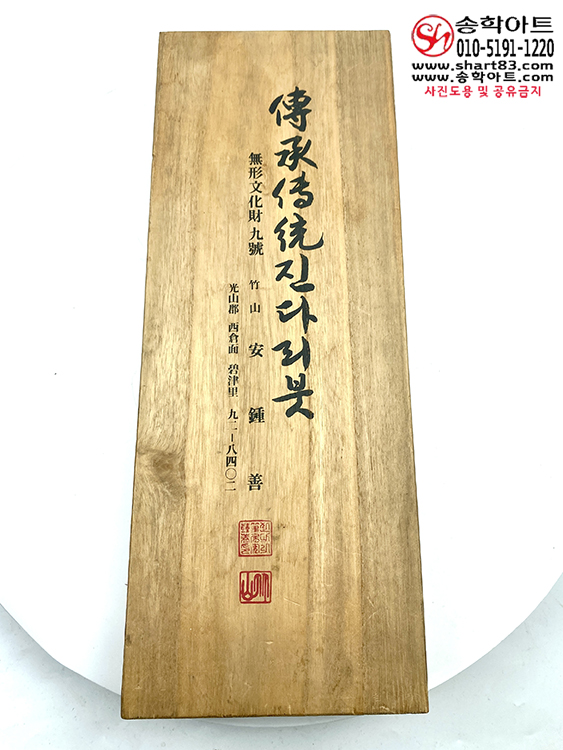 송학아트
010-5191-1220
www.shart83.com
www.송학아트.com
사진도용 및 공유금지
傳承传統진다리붓
無形文化財九號
竹山 安鍾善
光山郡 西倉面 碧津里 九二-八四〇二